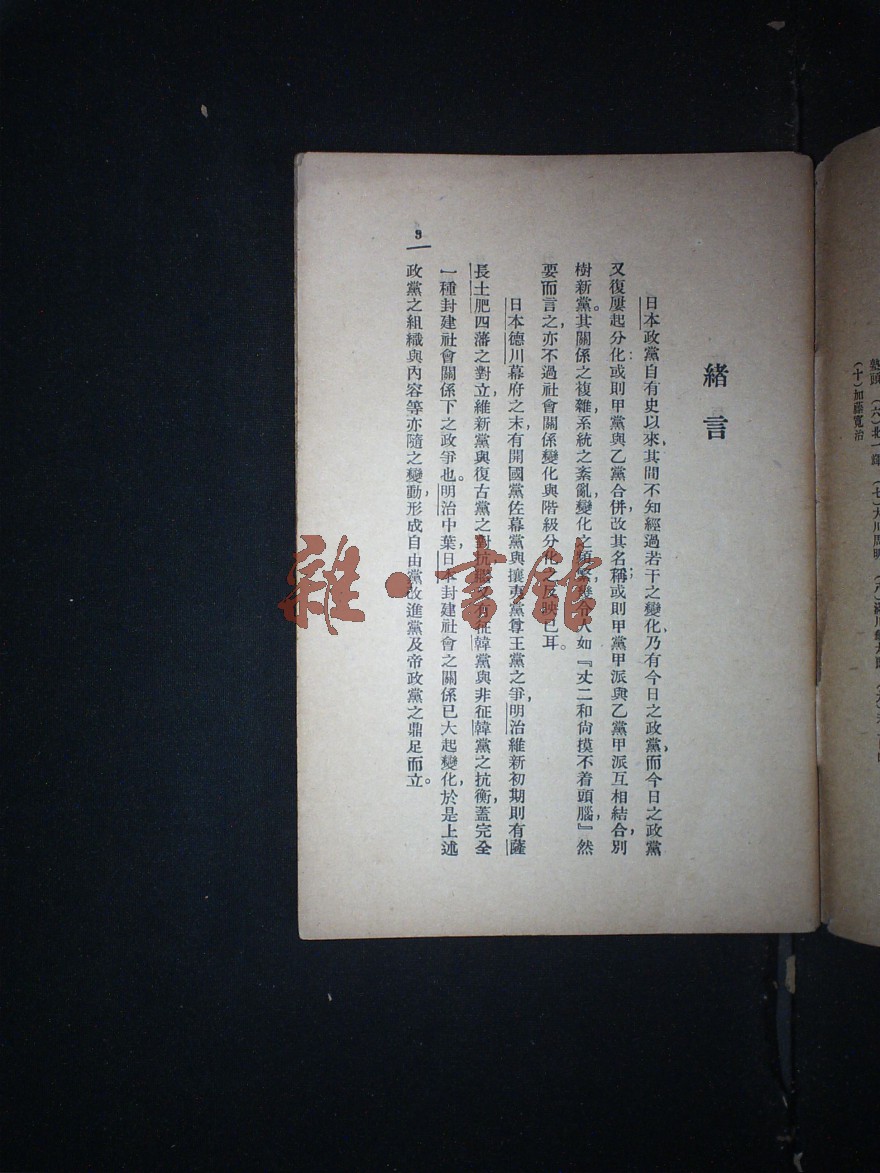 緒言
日本政黨自有史以來，其間不知經過若干之變化，乃有今日之政黨，而今日之政黨
又復屢起分化：或則甲黨與乙黨合併，改其名稱；或則甲黨甲派與乙黨甲派互相結合，別
樹新黨。其關係之複雜，系統之紊亂，變化之頻繁，幾令人如『丈二和尙摸不着頭腦，』然
要而言之，亦不過社會關係變化與階級分化之反映已耳。
日本德川幕府之末，有開國黨佐幕黨與攘夷黨尊王黨之爭，明治維新初期則有薩
長土肥四藩之對立，維新黨與復古黨之對抗，有征韓黨與非征韓黨之抗衡，蓋完全
一種封建社會關係下之政爭也。明治中葉，日本封建社會之關係已大起變化，於是上述
政黨之組織與內容等亦隨之變動，形成自由黨改進黨及帝政黨之鼎足而立。
3
雜·書館
(六)北一輝
(十)加藤寬治